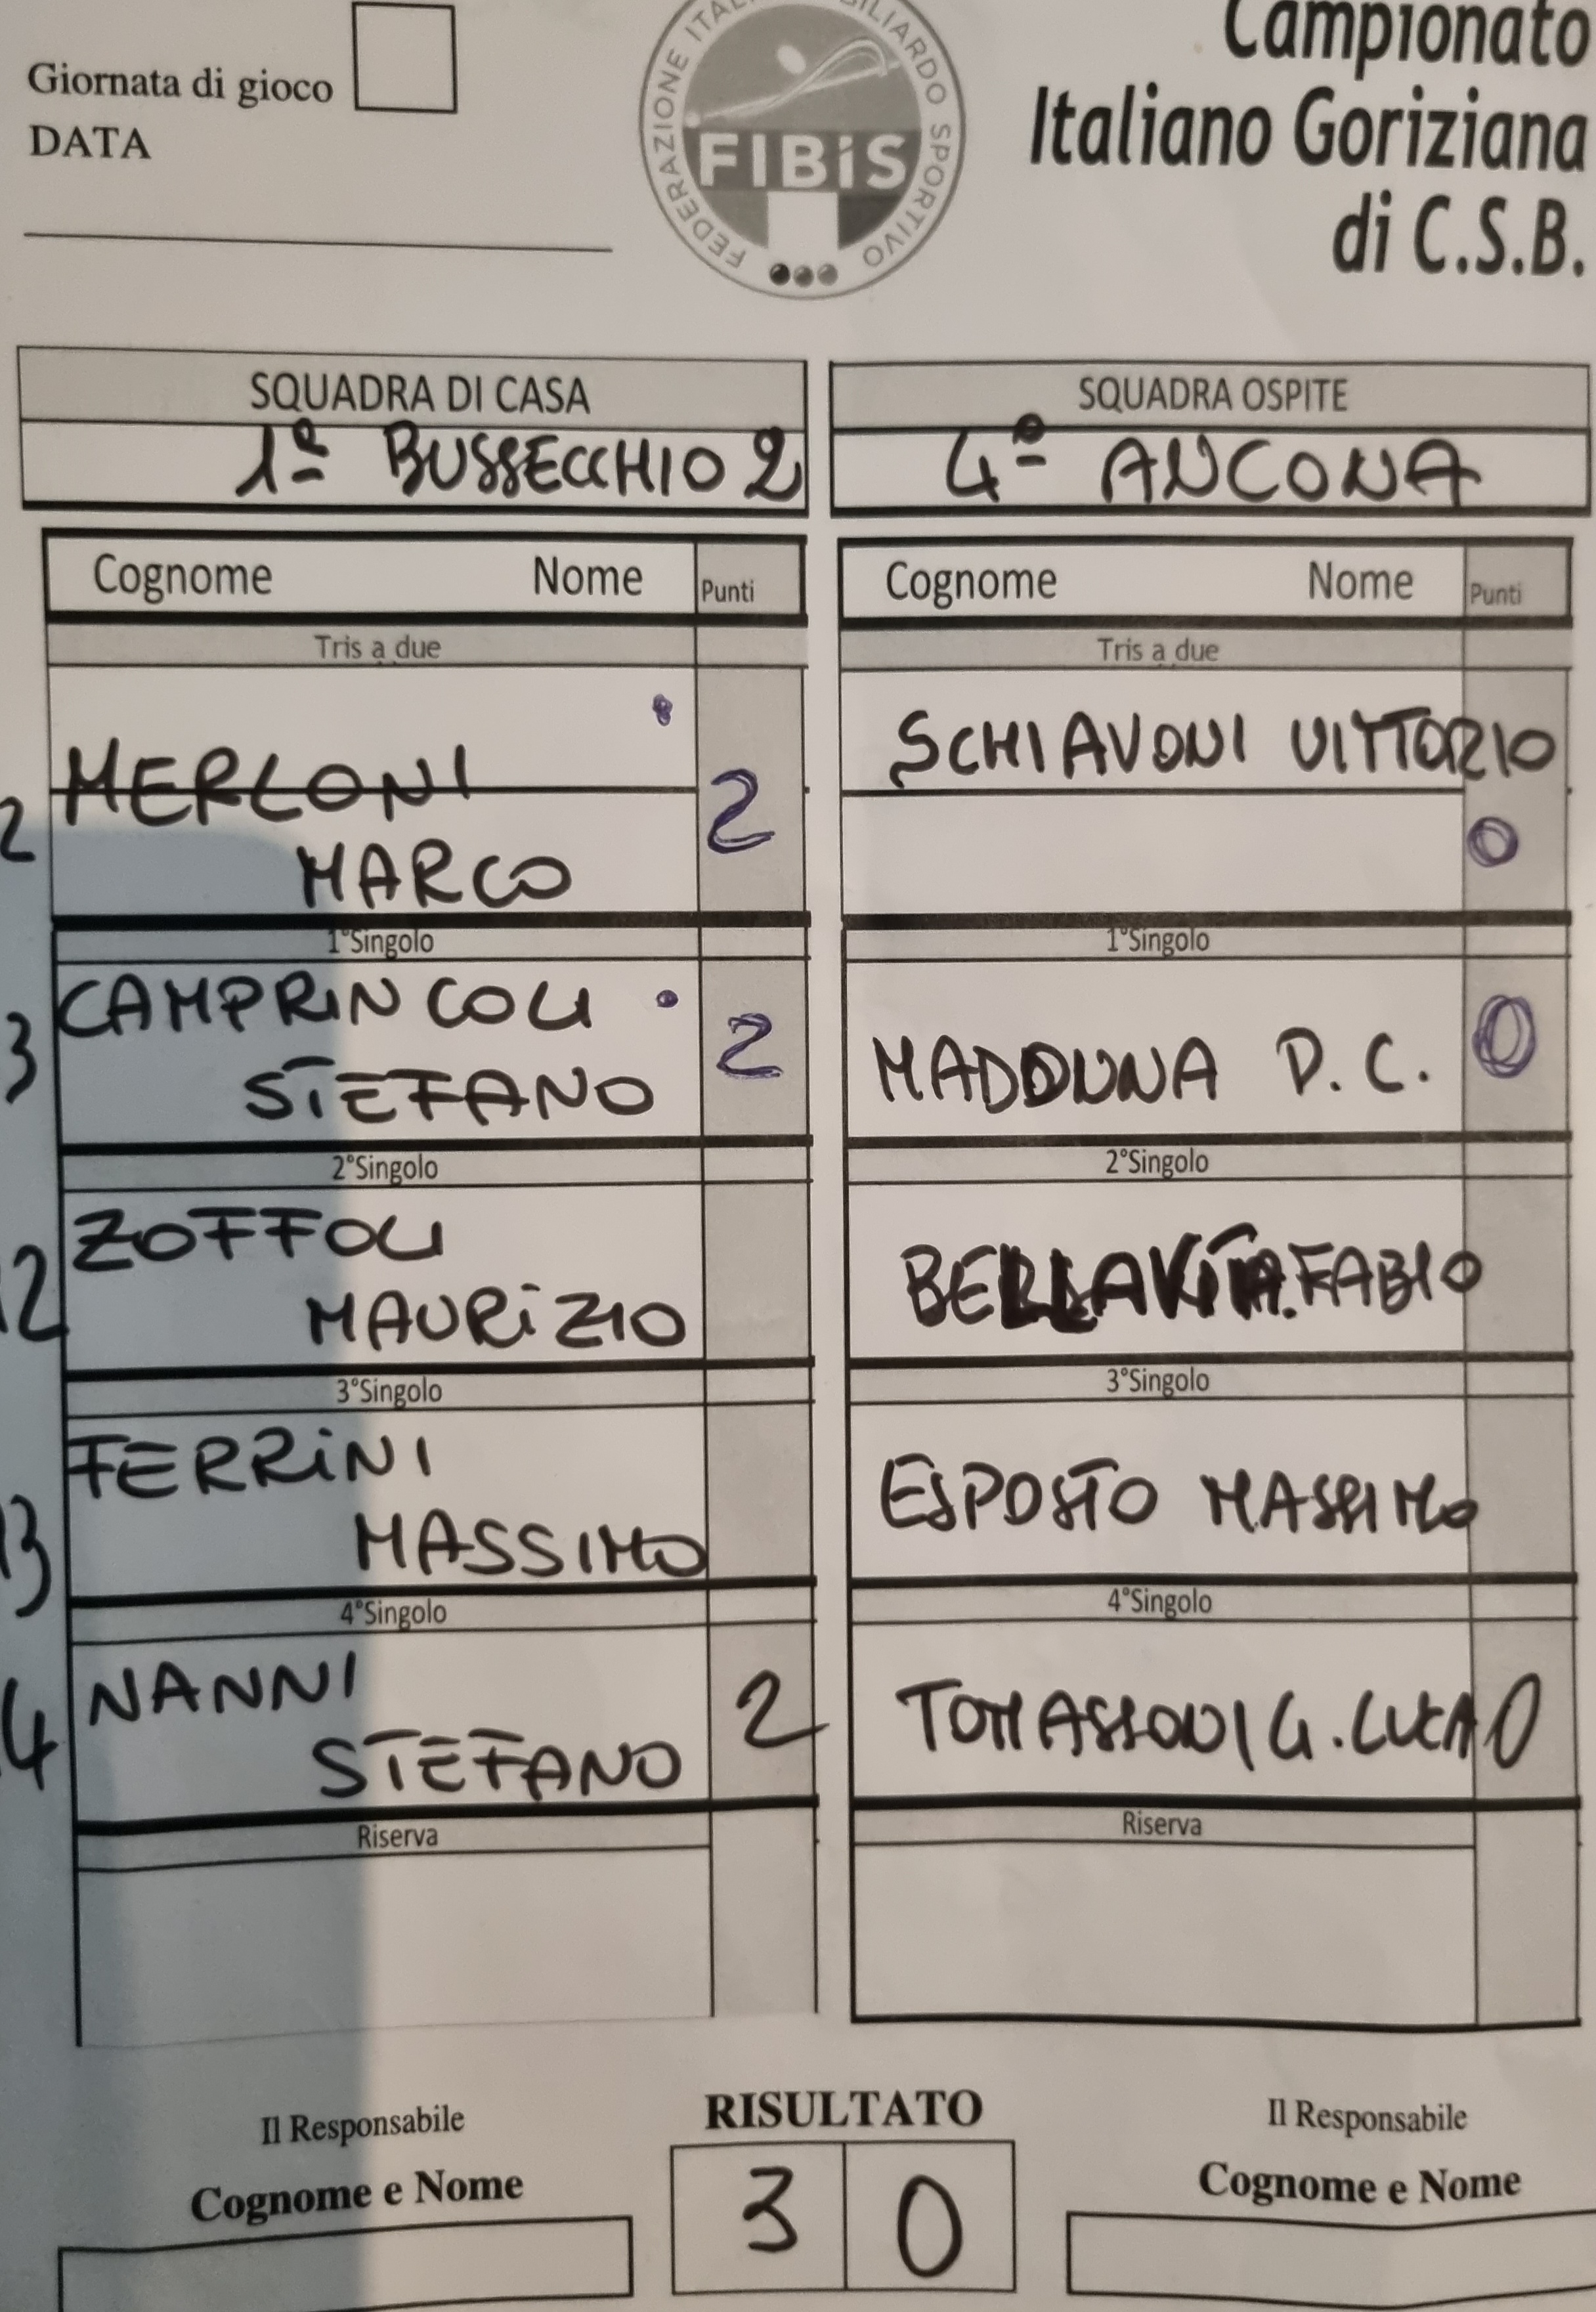 Giornata di gioco
DATA
FEDERAZIONE ITALIANA BILIARDO SPORTIVO
FIBiS
Campionato
Italiano Goriziana
di C.S.B.
SQUADRA DI CASA
1ª BUSSECCHIO 2
Cognome Nome Punti
Tris a due
2 MERLONI
MARCO 2
1°Singolo
3 CAMPRINCOLI
STEFANO 2
2°Singolo
12 ZOFFOLI
MAURIZIO
3°Singolo
13 FERRINI
MASSIMO
4°Singolo
14 NANNI
STEFANO 2
Riserva
SQUADRA OSPITE
4ª ANCONA
Cognome Nome Punti
Tris a due
SCHIAVONI VITTORIO
0
1°Singolo
MADONNA D.C. 0
2°Singolo
BELLAVITA FABIO
3°Singolo
ESPOSTO MASSIMO
4°Singolo
TOMASSONI G.LUCA 0
Riserva
Il Responsabile
Cognome e Nome
RISULTATO
3 0
Il Responsabile
Cognome e Nome